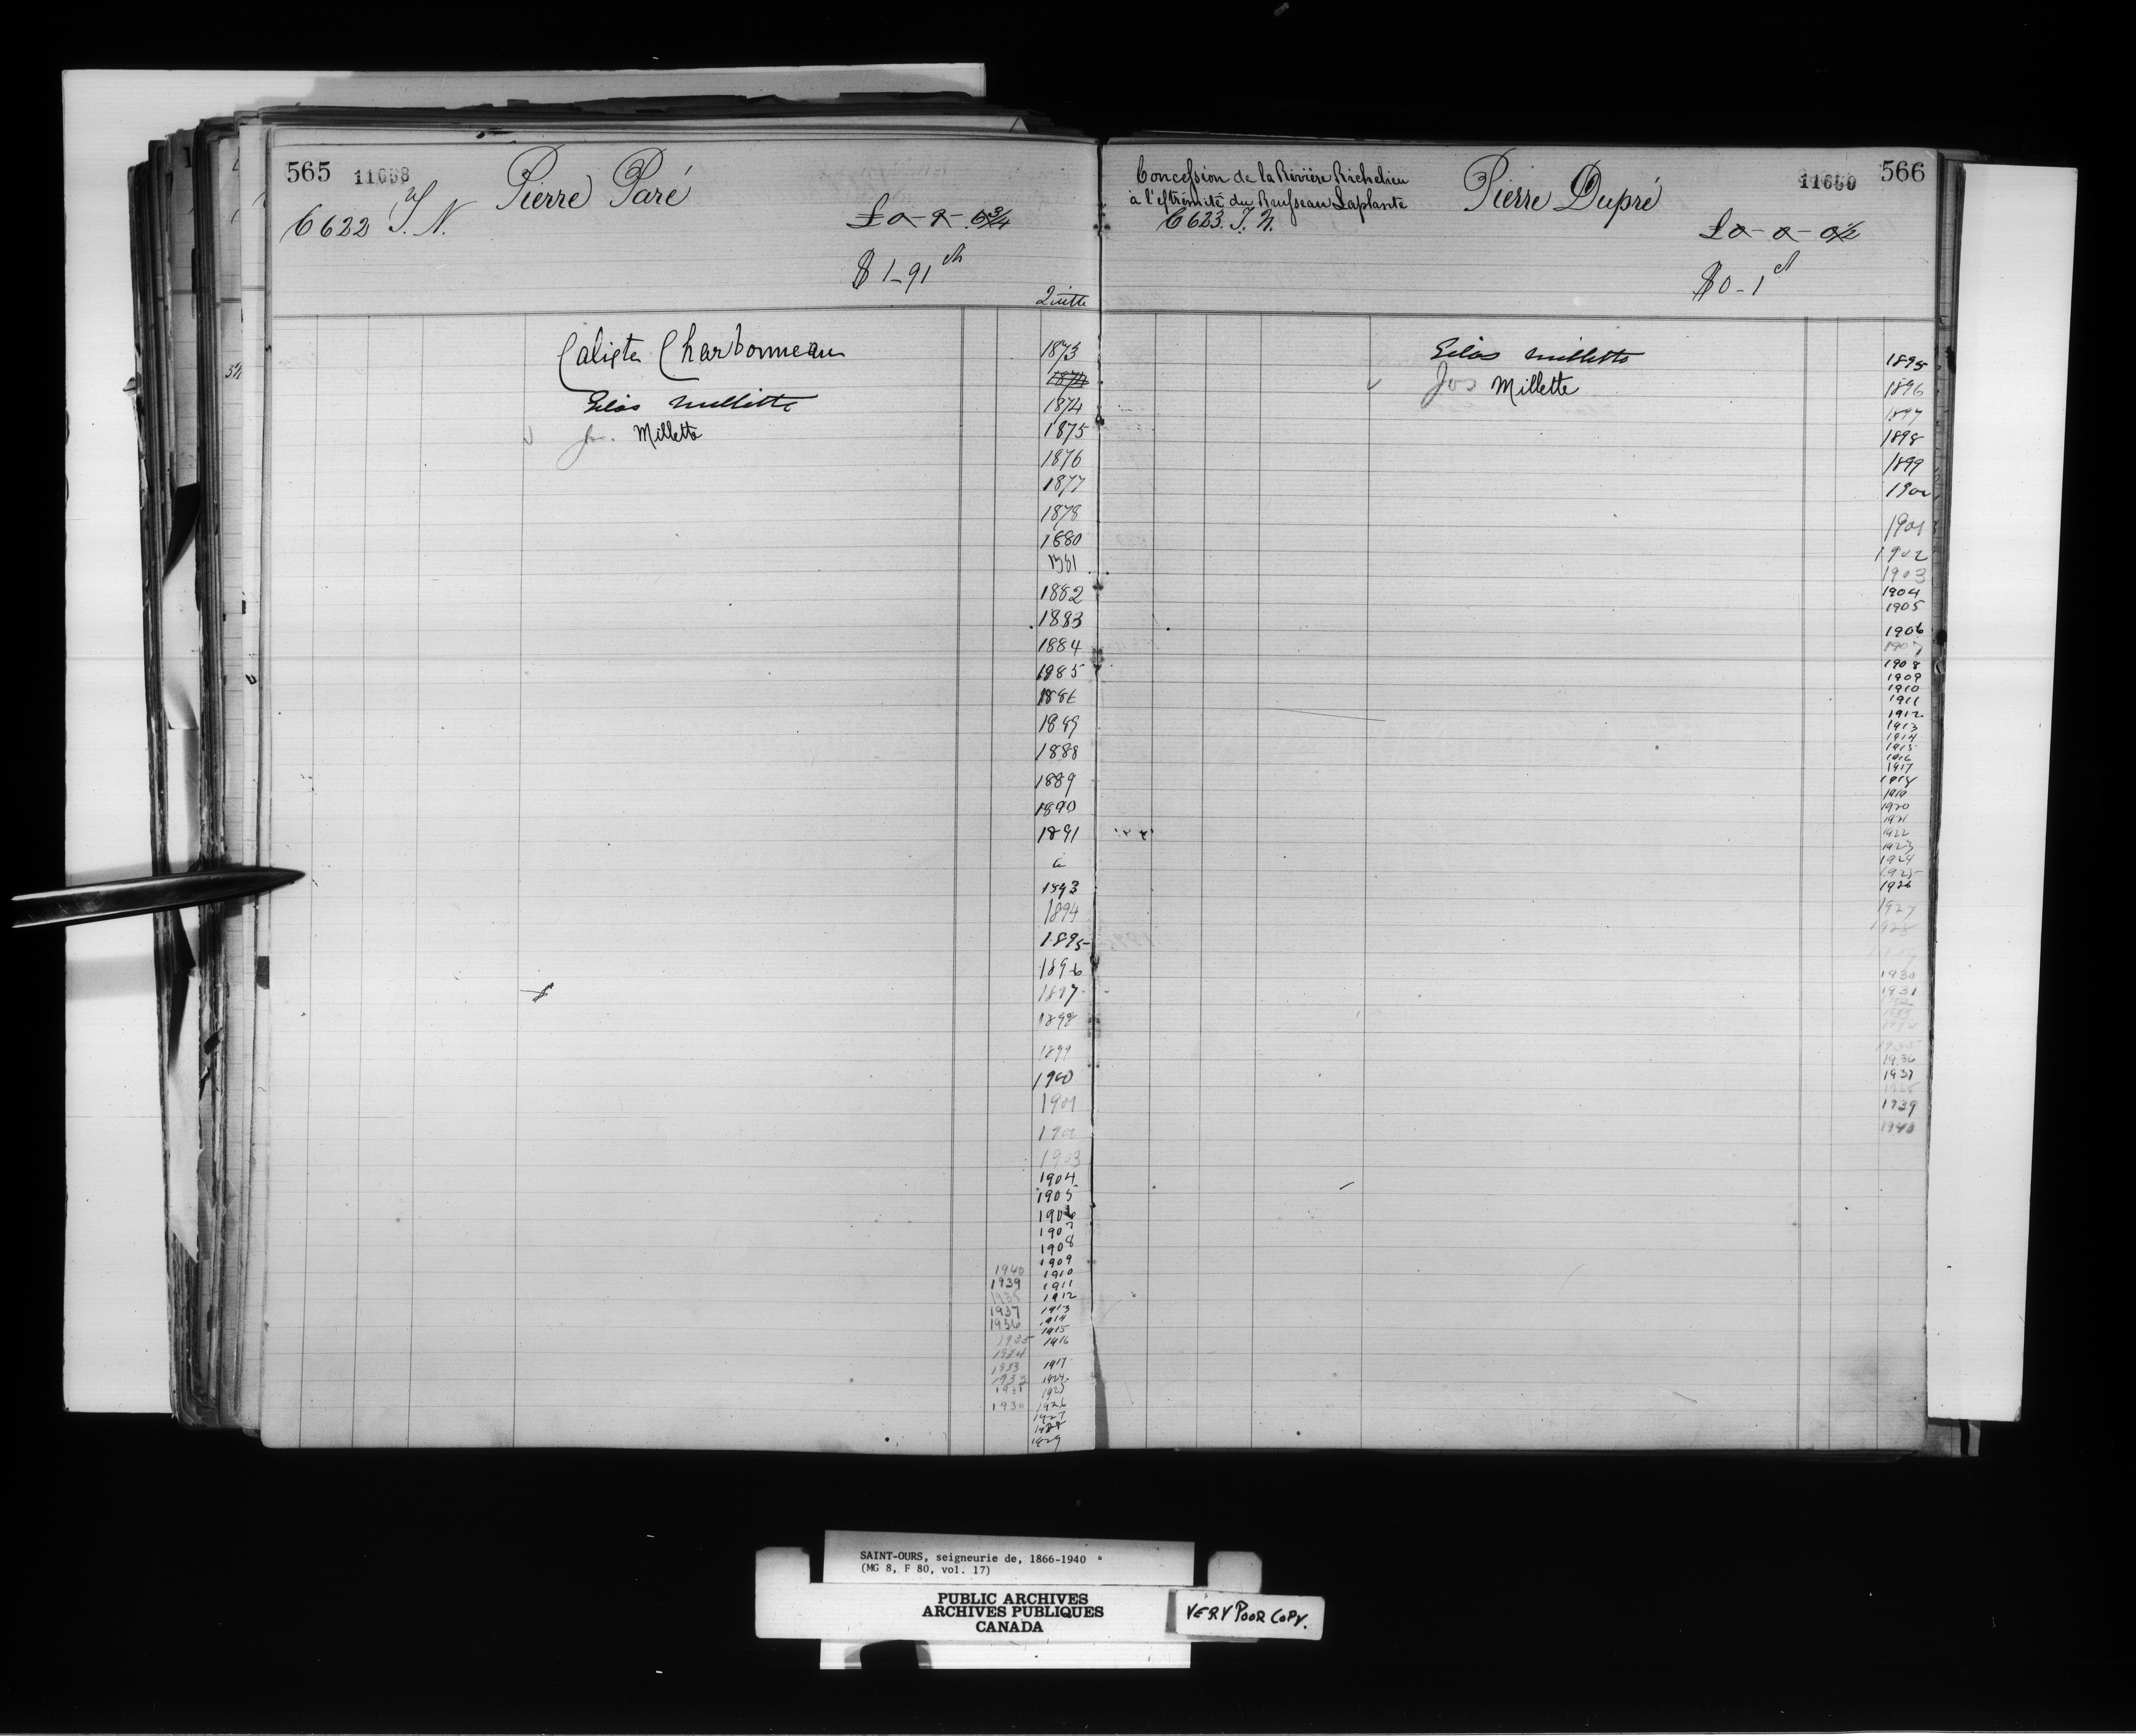 565 11658 Pierre Paré
C 622 T. N.
£0-9-
$1-91
Quitte
Calixte Charbonneau 1873
1874
Gélas Millette 1874
Millette 1875
1876
1877
1878
1880
1881
1882
1883
1884
1885
1886
1889
1888
1889
1890
1891
à
1893
1894
1895
1896
1897
1898
1899
1900
1901
1903
1904
1905
1906
1907
1908
1909
1940 1910
1939 1911
1938 1912
1937 1913
1936 1914
1915
1935 1916
1934
1933 1917
1932
1931
1930 1926
1927
1928
1929
Concession de la Rivière Richelieu
à l'extrémité du Ruisseau Laplante
Pierre Dupré 566
C 623. T. N.
£0-0-0½
$0-1
Gélas Millette 1895
Jos Millette 1896
1897
1898
1899
1900
1901
1902
1903
1904
1905
1906
1907
1908
1909
1910
1911
1912
1913
1914
1915
1916
1917
1918
1919
1920
1921
1922
1923
1924
1925
1926
1927
1928
1930
1931
1936
1937
1939
1940
SAINT-OURS, seigneurie de, 1866-1940
(MG 8, F 80, vol. 17)
PUBLIC ARCHIVES
ARCHIVES PUBLIQUES
CANADA
VERY POOR COPY.